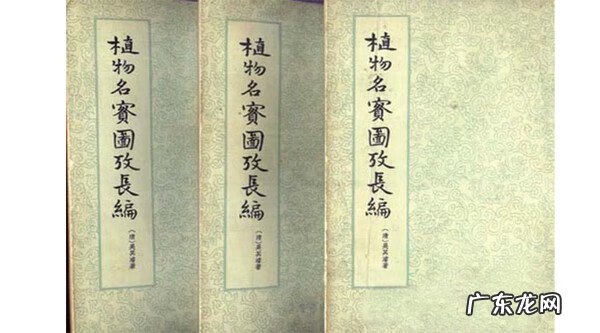 植物名實圖攷長編
(清)吳其濬著
植物名實圖攷長編
(清)吳其濬著
植物名實圖攷長編
(清)吳其濬著
广东龙网